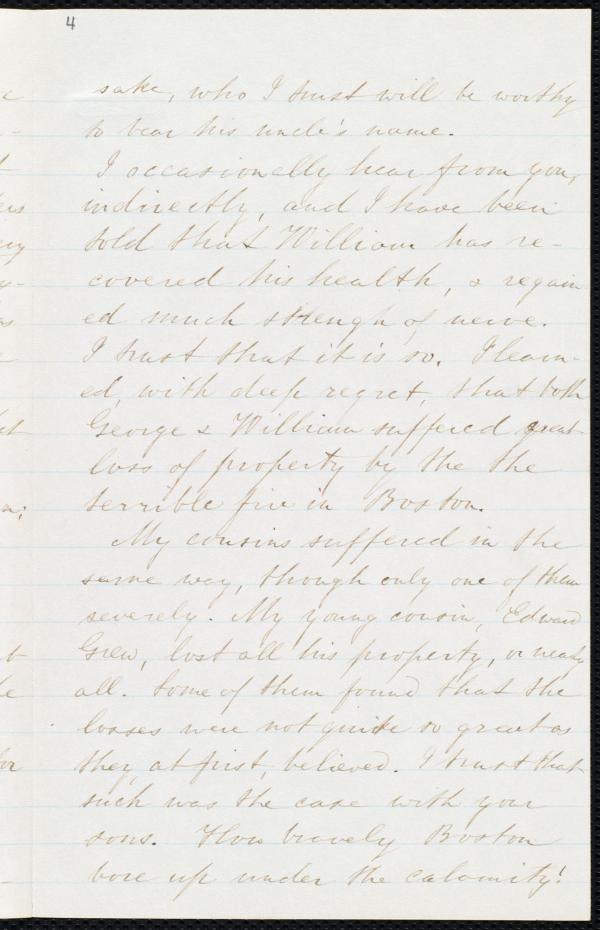 4
sake, who I trust will be worthy
to bear his uncle's name.
I occasionally hear from you,
indirectly, and I have been
told that William has re-
covered his health, & regain
ed much strengh of nerve.
I trust that it is so. I learn-
ed, with deep regret, that both
George & William suffered great
loss of property by the the
terrible fire in Boston.
My cousins suffered in the
same way, though only one of them
severely. My young cousin, Edward
Grew, lost all his property, or nearly
all. Some of them found that the
losses were not quite so great as
they, at first, believed. I trust that
such was the case with your
sons. How bravely Boston
bore up under the calamity!